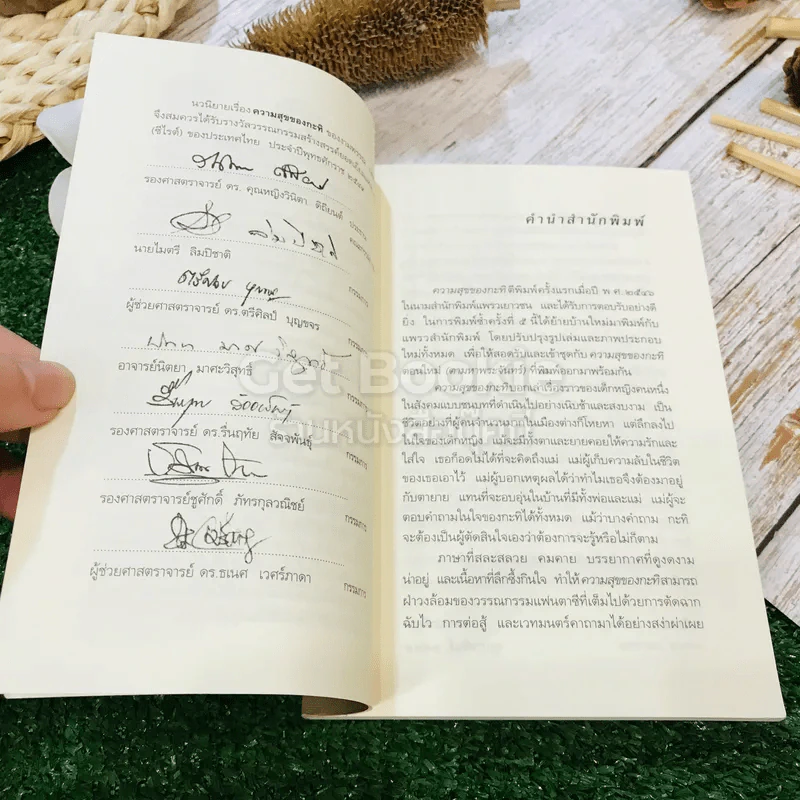 นวนิยายเรื่อง ความสุขของกะทิ ของงามพรรณ
จึงสมควรได้รับรางวัลวรรณกรรมสร้างสรรค์ยอดเยี่ยม
(ซีไรต์) ของประเทศไทย ประจำปีพุทธศักราช ๒๕๔๙
รองศาสตราจารย์ ดร. คุณหญิงวินิตา ดิถียนต์ ประธาน
นายไมตรี ลิมปิชาติ กรรมการ
ผู้ช่วยศาสตราจารย์ ดร.ตรีศิลป์ บุญขจร กรรมการ
อาจารย์นิตยา มาศะวิสุทธิ์ กรรมการ
รองศาสตราจารย์ ดร.รื่นฤทัย สัจจพันธุ์ กรรมการ
รองศาสตราจารย์ชูศักดิ์ ภัทรกุลวณิชย์ กรรมการ
ผู้ช่วยศาสตราจารย์ ดร.ธเนศ เวศร์ภาดา กรรมการ
คำนำสำนักพิมพ์
ความสุขของกะทิ ตีพิมพ์ครั้งแรกเมื่อปี พ.ศ.๒๕๔๖
ในนามสำนักพิมพ์แพรวเยาวชน และได้รับการตอบรับอย่างดี
ยิ่ง ในการพิมพ์ซ้ำครั้งที่ ๕ นี้ได้ย้ายบ้านใหม่มาพิมพ์กับ
แพรวสำนักพิมพ์ โดยปรับปรุงรูปเล่มและภาพประกอบ
ใหม่ทั้งหมด เพื่อให้สอดรับและเข้าชุดกับ ความสุขของกะทิ
ตอนใหม่ (ตามหาพระจันทร์) ที่พิมพ์ออกมาพร้อมกัน
ความสุขของกะทิบอกเล่าเรื่องราวของเด็กหญิงคนหนึ่ง
ในสังคมแบบชนบทที่ดำเนินไปอย่างเนิบช้าและสงบงาม เป็น
ชีวิตอย่างที่ผู้คนจำนวนมากในเมืองต่างก็โหยหา แต่ลึกลงไป
ในใจของเด็กหญิง แม้จะมีทั้งตาและยายคอยให้ความรักและ
ใส่ใจ เธอก็อดไม่ได้ที่จะคิดถึงแม่ แม่ผู้เก็บความลับในชีวิต
ของเธอเอาไว้ แม่ผู้บอกเหตุผลได้ว่าทำไมเธอจึงต้องมาอยู่
กับตายาย แทนที่จะอบอุ่นในบ้านที่มีทั้งพ่อและแม่ แม่ผู้จะ
ตอบคำถามในใจของกะทิได้ทั้งหมด แม้ว่าบางคำถาม กะทิ
จะต้องเป็นผู้ตัดสินใจเองว่าต้องการจะรู้หรือไม่ก็ตาม
ภาษาที่สละสลวย คมคาย บรรยากาศที่ดูงดงาม
น่าอยู่ และเนื้อหาที่ลึกซึ้งกินใจ ทำให้ ความสุขของกะทิ สามารถ
ฝ่าวงล้อมของวรรณกรรมแฟนตาซีที่เต็มไปด้วยการตัดฉาก
ฉับไว การต่อสู้ และเวทมนตร์คาถามาได้อย่างสง่าผ่าเผย
Get Bookie
ร้านหนังสือใหม่